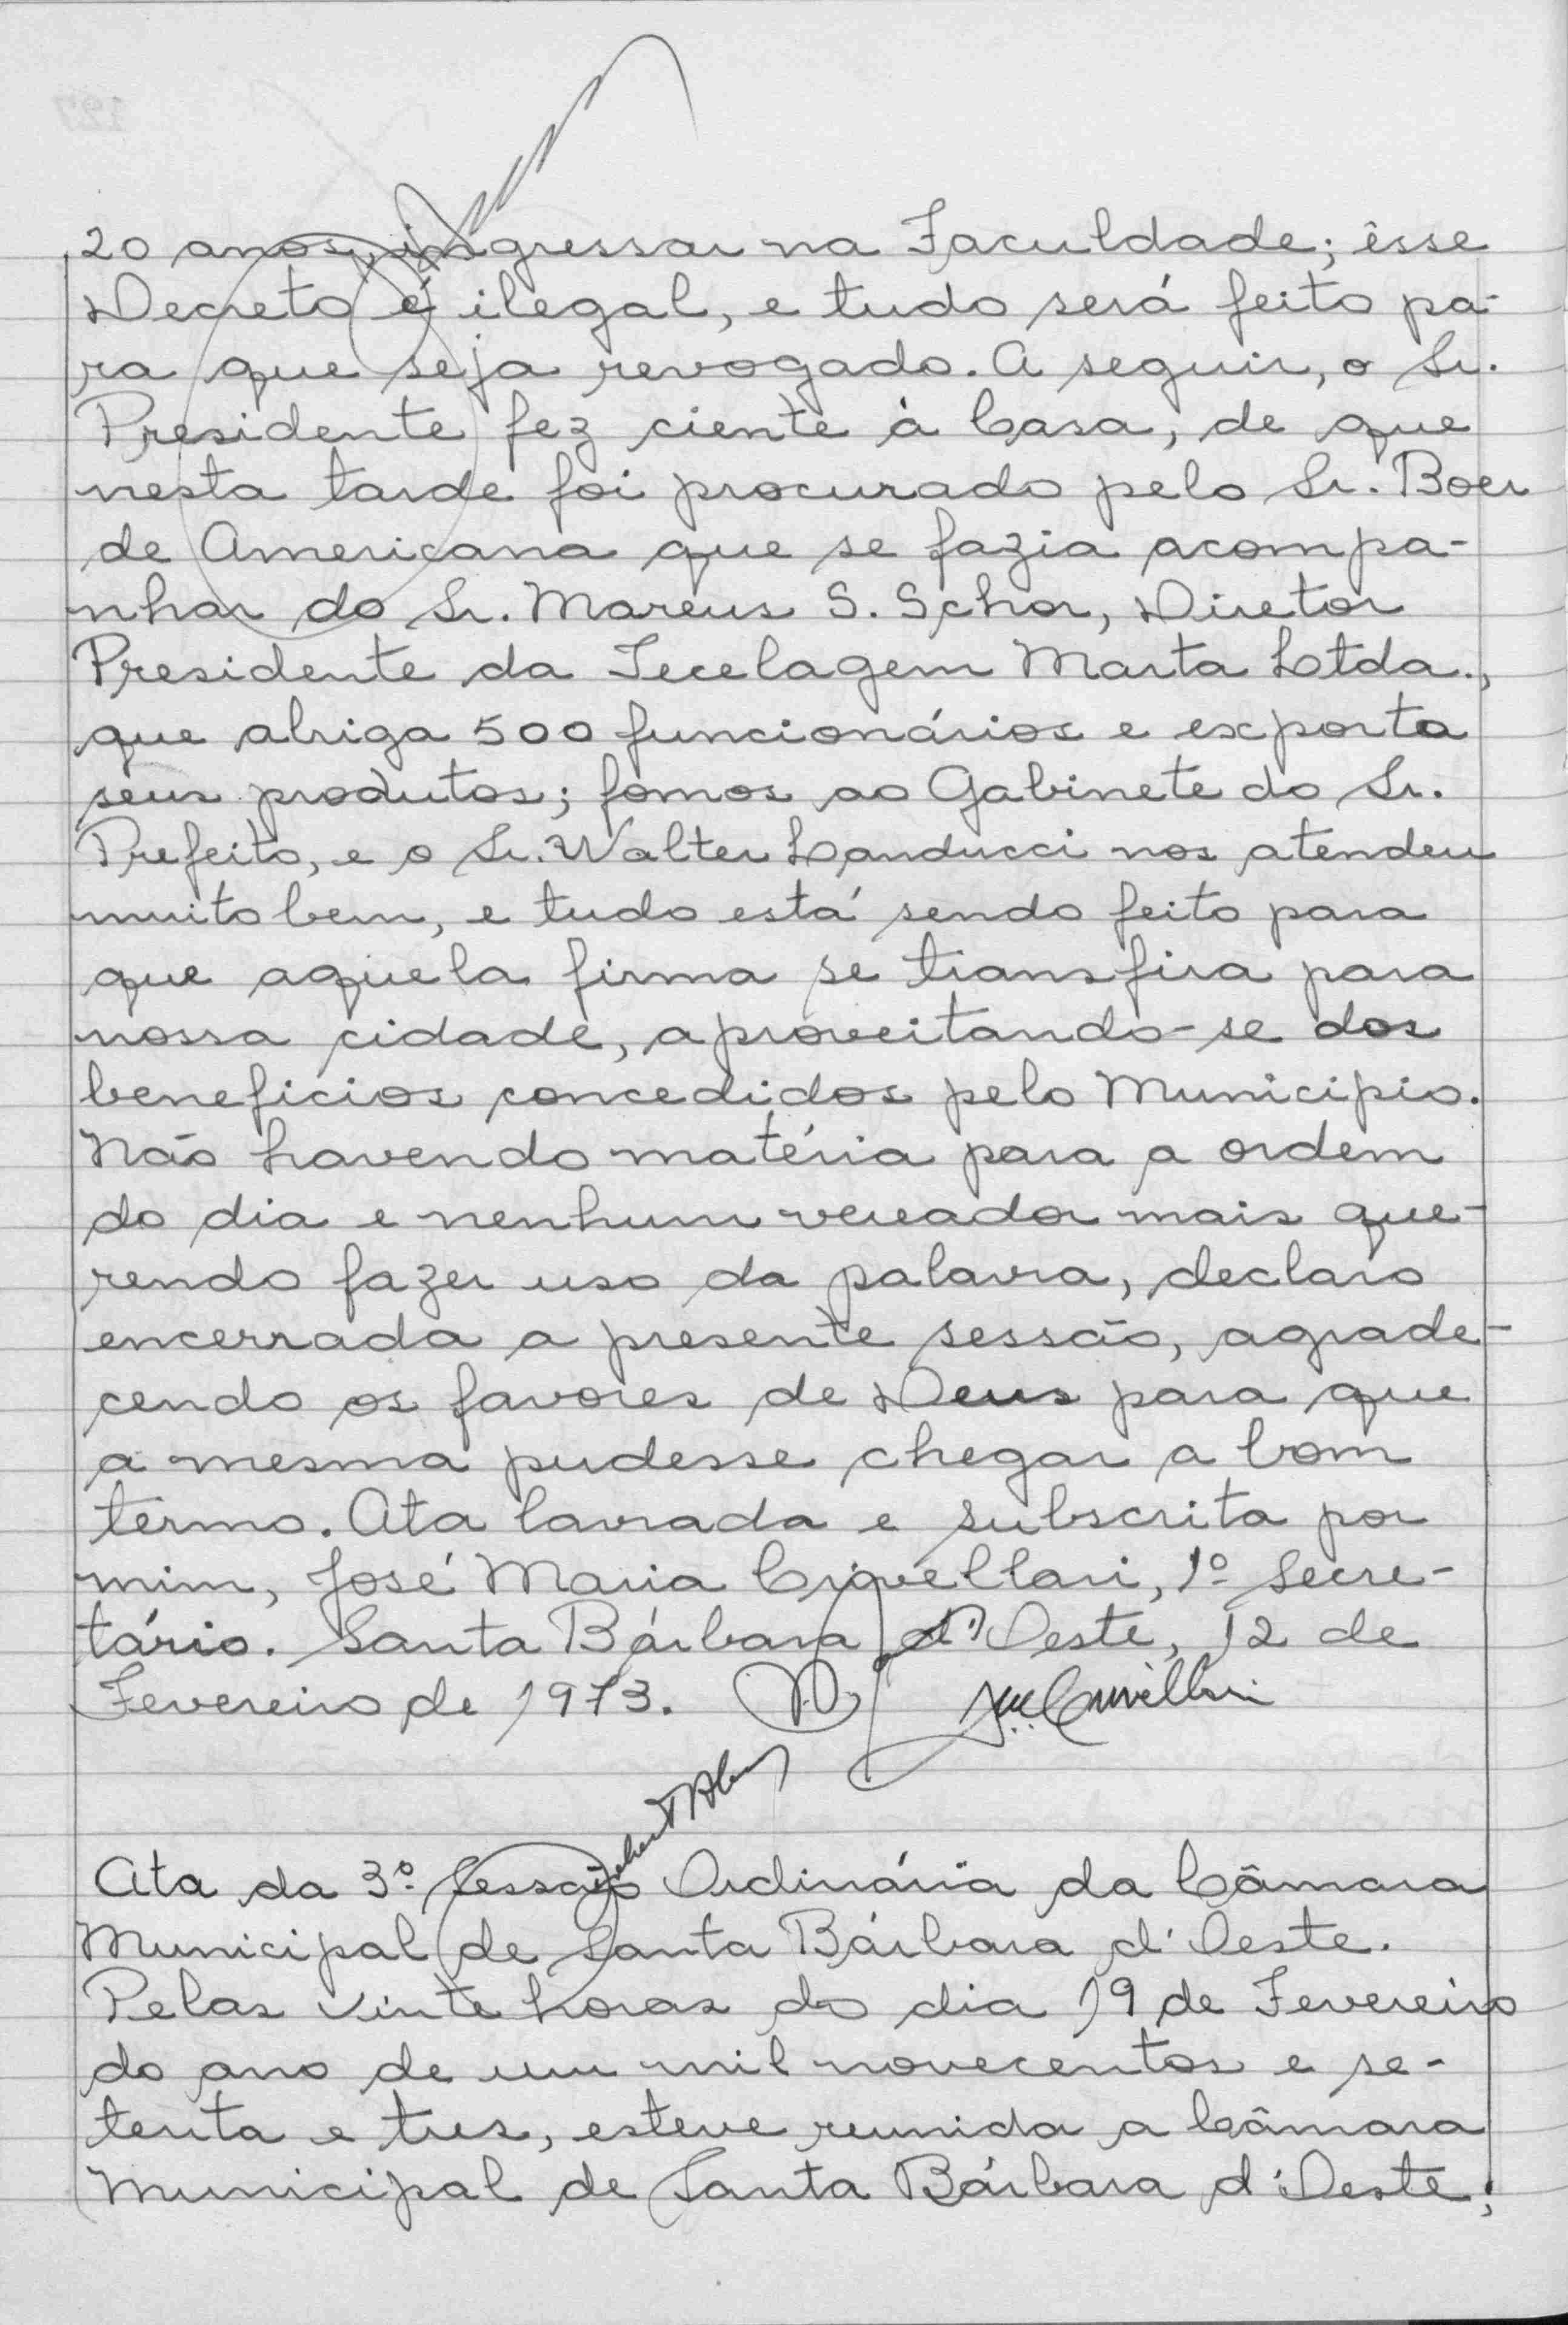 20 anos, ingressar na Faculdade; êsse
Decreto é ilegal, e tudo será feito pa-
ra que seja revogado. A seguir, o Sr.
Presidente fez ciente à Casa, de que
nesta tarde foi procurado pelo Sr. Boer
de Americana que se fazia acompa-
nhar do Sr. Marcus S. Schor, Diretor
Presidente da Tecelagem Marta Ltda.,
que abriga 500 funcionários e exporta
seus produtos; fomos ao Gabinete do Sr.
Prefeito, e o Sr. Walter Landucci nos atendeu
muito bem, e tudo está sendo feito para
que aquela firma se transfira para
nossa cidade, aproveitando-se dos
beneficios concedidos pelo Municipio.
Não havendo matéria para a ordem
do dia e nenhum vereador mais que-
rendo fazer uso da palavra, declaro
encerrada a presente sessão, agrade-
cendo os favores de Deus para que
a mesma pudesse chegar a bom
termo. Ata lavrada e subscrita por
mim, José Maria Crivellari, 1º Secre-
tário. Santa Bárbara d'Oeste, 12 de
Fevereiro de 1973.
Ata da 3º Sessão Ordinária da Câmara
Municipal de Santa Bárbara d'Oeste.
Pelas vinte horas do dia 19 de Fevereiro
do ano de um mil novecentos e se-
tenta e tres, esteve reunida a Câmara
Municipal de Santa Bárbara d'Oeste;